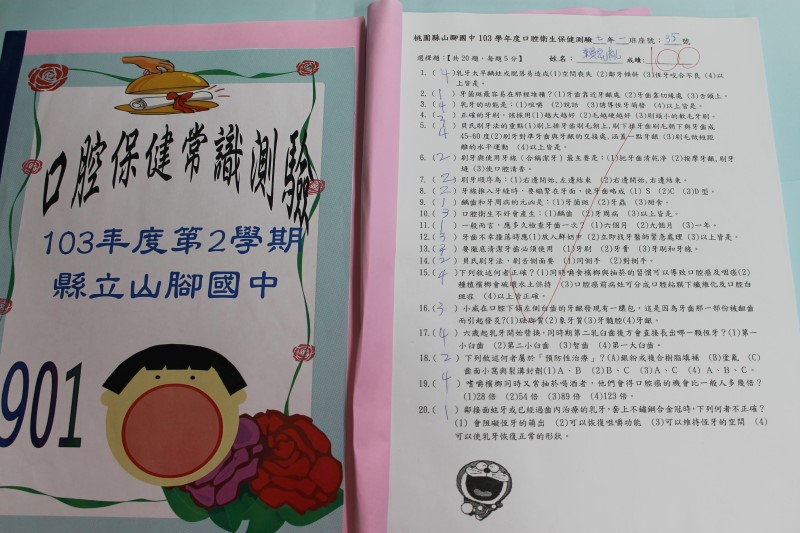 口腔保健常識測驗
103年度第2學期
縣立山腳國中
901
桃園縣山腳國中 103 學年度口腔衛生保健測驗 三 年 一 班座號：35 號
選擇題：【共 20 題，每題 5 分】 姓名： 成績：100
1.（4）乳牙太早齲蛀或脫落易造成(1)空間喪失 (2)鄰牙傾斜 (3)恆牙咬合不良 (4)以
上皆是。
2.（1）牙菌斑最容易在那裡堆積？(1)牙齒靠近牙齦處 (2)牙齒靠切緣處 (3)舌頭上。
3.（4）乳牙的功能是：(1)咀嚼 (2)說話 (3)誘導恆牙萌發 (4)以上皆是。
4.（3）正確的牙刷，該採用(1)越大越好 (2)毛越硬越好 (3)刷頭小的軟毛牙刷。
5.（4）貝氏刷牙法的重點(1)刷上排牙齒刷毛朝上，刷下排牙齒刷毛朝下與牙齒成
45-60 度(2)刷牙對準牙齒與牙齦的交接處，涵蓋一點牙齦 (3)刷毛做短距
離的水平運動 (4)以上皆是。
6.（2）刷牙與使用牙線（合稱潔牙）最主要是：(1)把牙齒清乾淨 (2)按摩牙齦，刷牙
縫 (3)使口腔清香。
7.（2）刷牙順序為：(1)右邊開始，左邊結束 (2)右邊開始，右邊結束。
8.（2）牙線推入牙縫時，要繃緊在牙面，使牙齒略成 (1) S (2)C (3)D 型。
9.（1）齲齒和牙周病的元凶是：(1)牙菌斑 (2)牙蟲 (3)甜食。
10.（3）口腔衛生不好會產生：(1)齲齒 (2)牙周病 (3)以上皆是。
11.（1）一般而言，應多久檢查牙齒一次？(1)六個月 (2)九個月 (3)一年。
12.（3）牙齒不幸撞落時應(1)放入鮮奶中 (2)立即找牙醫師緊急處理 (3)以上皆是。
13.（3）要徹底清潔牙齒必須使用 (1)牙刷 (2)牙膏 (3)牙刷和牙線。
14.（2）貝氏刷牙法，刷舌側面要 (1)同側手 (2)對側手。
15.（4）下列敘述何者正確？(1)同時嚼食檳榔與抽菸的習慣可以導致口腔癌及咽癌(2)
種植檳榔會破壞水土保持 (3)口腔癌前病灶可分成口腔粘膜下纖維化及口腔白
斑症 (4)以上皆正確。
16.（3）小威在口腔下顎左側臼齒的牙齦發現有一膿包，這是因為牙齒那一部份被蛀齒
而引起發炎？(1)琺瑯質(2)象牙質(3)牙髓腔(4)牙齦。
17.（4）六歲起乳牙開始替換，同時期第二乳臼齒後方會直接長出哪一顆恆牙？(1)第一
小臼齒 (2)第二小臼齒 (3)智齒 (4)第一大臼齒。
18.（2）下列敘述何者屬於「預防性治療」？(A)銀粉或複合樹脂填補 (B)塗氟 (C)
齒面小窩與裂溝封劑(1)A、B (2)B、C (3)A、C (4)A、B、C。
19.（4）嗜嚼檳榔同時又常抽菸喝酒者，他們會得口腔癌的機會比一般人多幾倍？
(1)28 倍 (2)54 倍 (3)89 倍 (4)123 倍。
20.（1）鄰接面蛀牙或已經過齒內治療的乳牙，套上不鏽鋼合金冠時，下列何者不正確？
(1) 會阻礙恆牙的萌出 (2)可以恢復咀嚼功能 (3)可以維持恆牙的空間 (4)
可以使乳牙恢復正常的形狀。